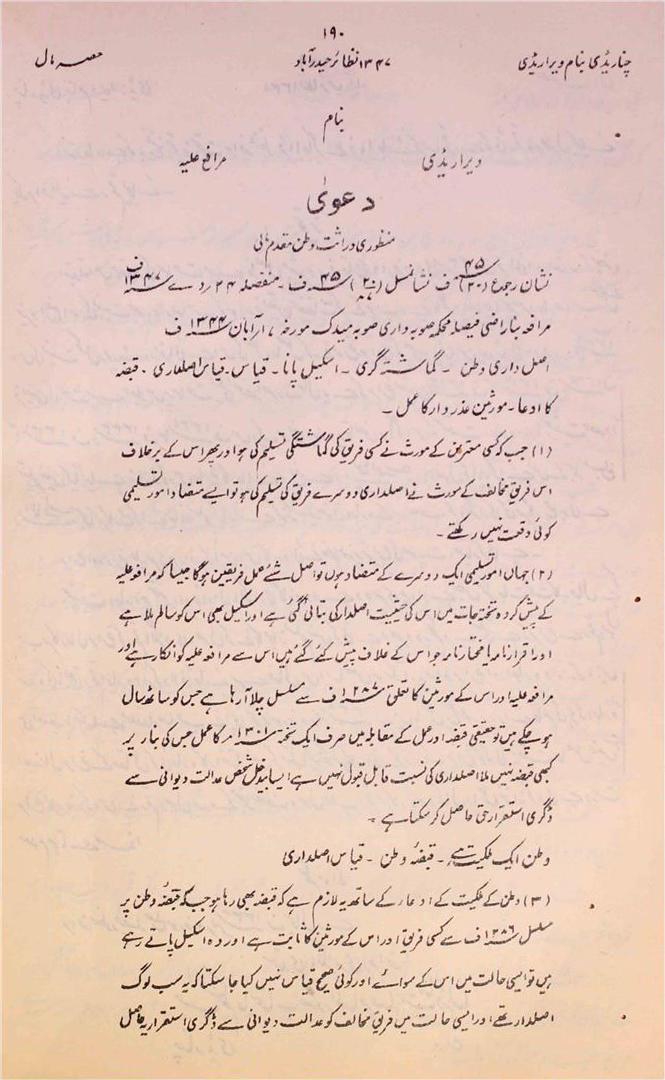 ۱۹۰
چنا ریڈی بنام ویرا ریڈی ۱۳۴۷ نظائر حیدرآباد حصہ مال
بنام
ویرا ریڈی مرافع علیہ
دعویٰ
منظوری وراثت وطن مقدم مالی
نشان رجوع (۲۰) ۴۵ ف نشانمسل ۴۵ ف۔ منفصلہ ۲۴ ردے ۱۳۴۷ ف
مرافعہ بناراضی فیصلہ محکمہ صوبہ داری صوبہ میدک مورخہ ۷ ر آبان ۱۳۴۴ ف
اصل داری وطن ۔ گماشتہ گری ۔ اسکیل پانا ۔ قیاس ۔ قیاس اصلداری ۔ قبضہ
کا ادعا ۔ مورثین عذر دار کا عمل ۔
(۱) جب کہ کسی معترض کے مورث نے کسی فریق کی گماشتگی تسلیم کی ہو اور پھر اس کے برخلاف
اس فریق مخالف کے مورث نے اصلداری دوسرے فریق کی تسلیم کی ہو تو ایسے متضاد امور تسلیمی
کوئی وقعت نہیں رکھتے ۔
(۲) جہاں امور تسلیمی ایک دوسرے کے متضاد ہوں تو اصل شئے عمل فریقین ہوگا جیسا کہ مرافعہ علیہ
کے پیش کردہ تختہ جات میں اس کی حیثیت اصلدار کی بتائی گئی ہے اور اسکیل بھی اس کو سالم ملا ہے
اور اقرار نامہ یا مختار نامہ جو اس کے خلاف پیش کئے گئے ہیں اس سے مرافعہ علیہ کو انکار ہے اور
مرافعہ علیہ اور اس کے مورثین کا تعلق ۱۲۸۷ ف سے مسلسل چلا آ رہا ہے جس کو ساٹھ سال
ہو چکے ہیں تو حقیقی قبضہ اور عمل کے مقابلہ میں صرف ایک تختہ ۱۳۰۱ مر کا عمل جس کی بناء پر
کبھی قبضہ نہیں ملا اصلداری کی نسبت قابل قبول نہیں ہے ایسا بیدخل شخص عدالت دیوانی سے
ڈگری استقرار حق حاصل کر سکتا ہے ۔
وطن ایک ملکیت ہے ۔ قبضۂ وطن ۔ قیاس اصلداری
(۳) وطن کے ملکیت کے ادعاء کے ساتھ یہ لازم ہے کہ قبضہ بھی رہا ہو جب کہ قبضۂ وطن پر
مسلسل ۱۲۸۶ ف سے کسی فریق اور اس کے مورثین کا ثابت ہے اور وہ اسکیل پاتے رہے
ہیں تو ایسی حالت میں اس کے سوائے اور کوئی صحیح قیاس نہیں کیا جا سکتا کہ یہ سب لوگ
اصلدار تھے اور ایسی حالت میں فریق مخالف کو عدالت دیوانی سے ڈگری استقراریہ حاصل